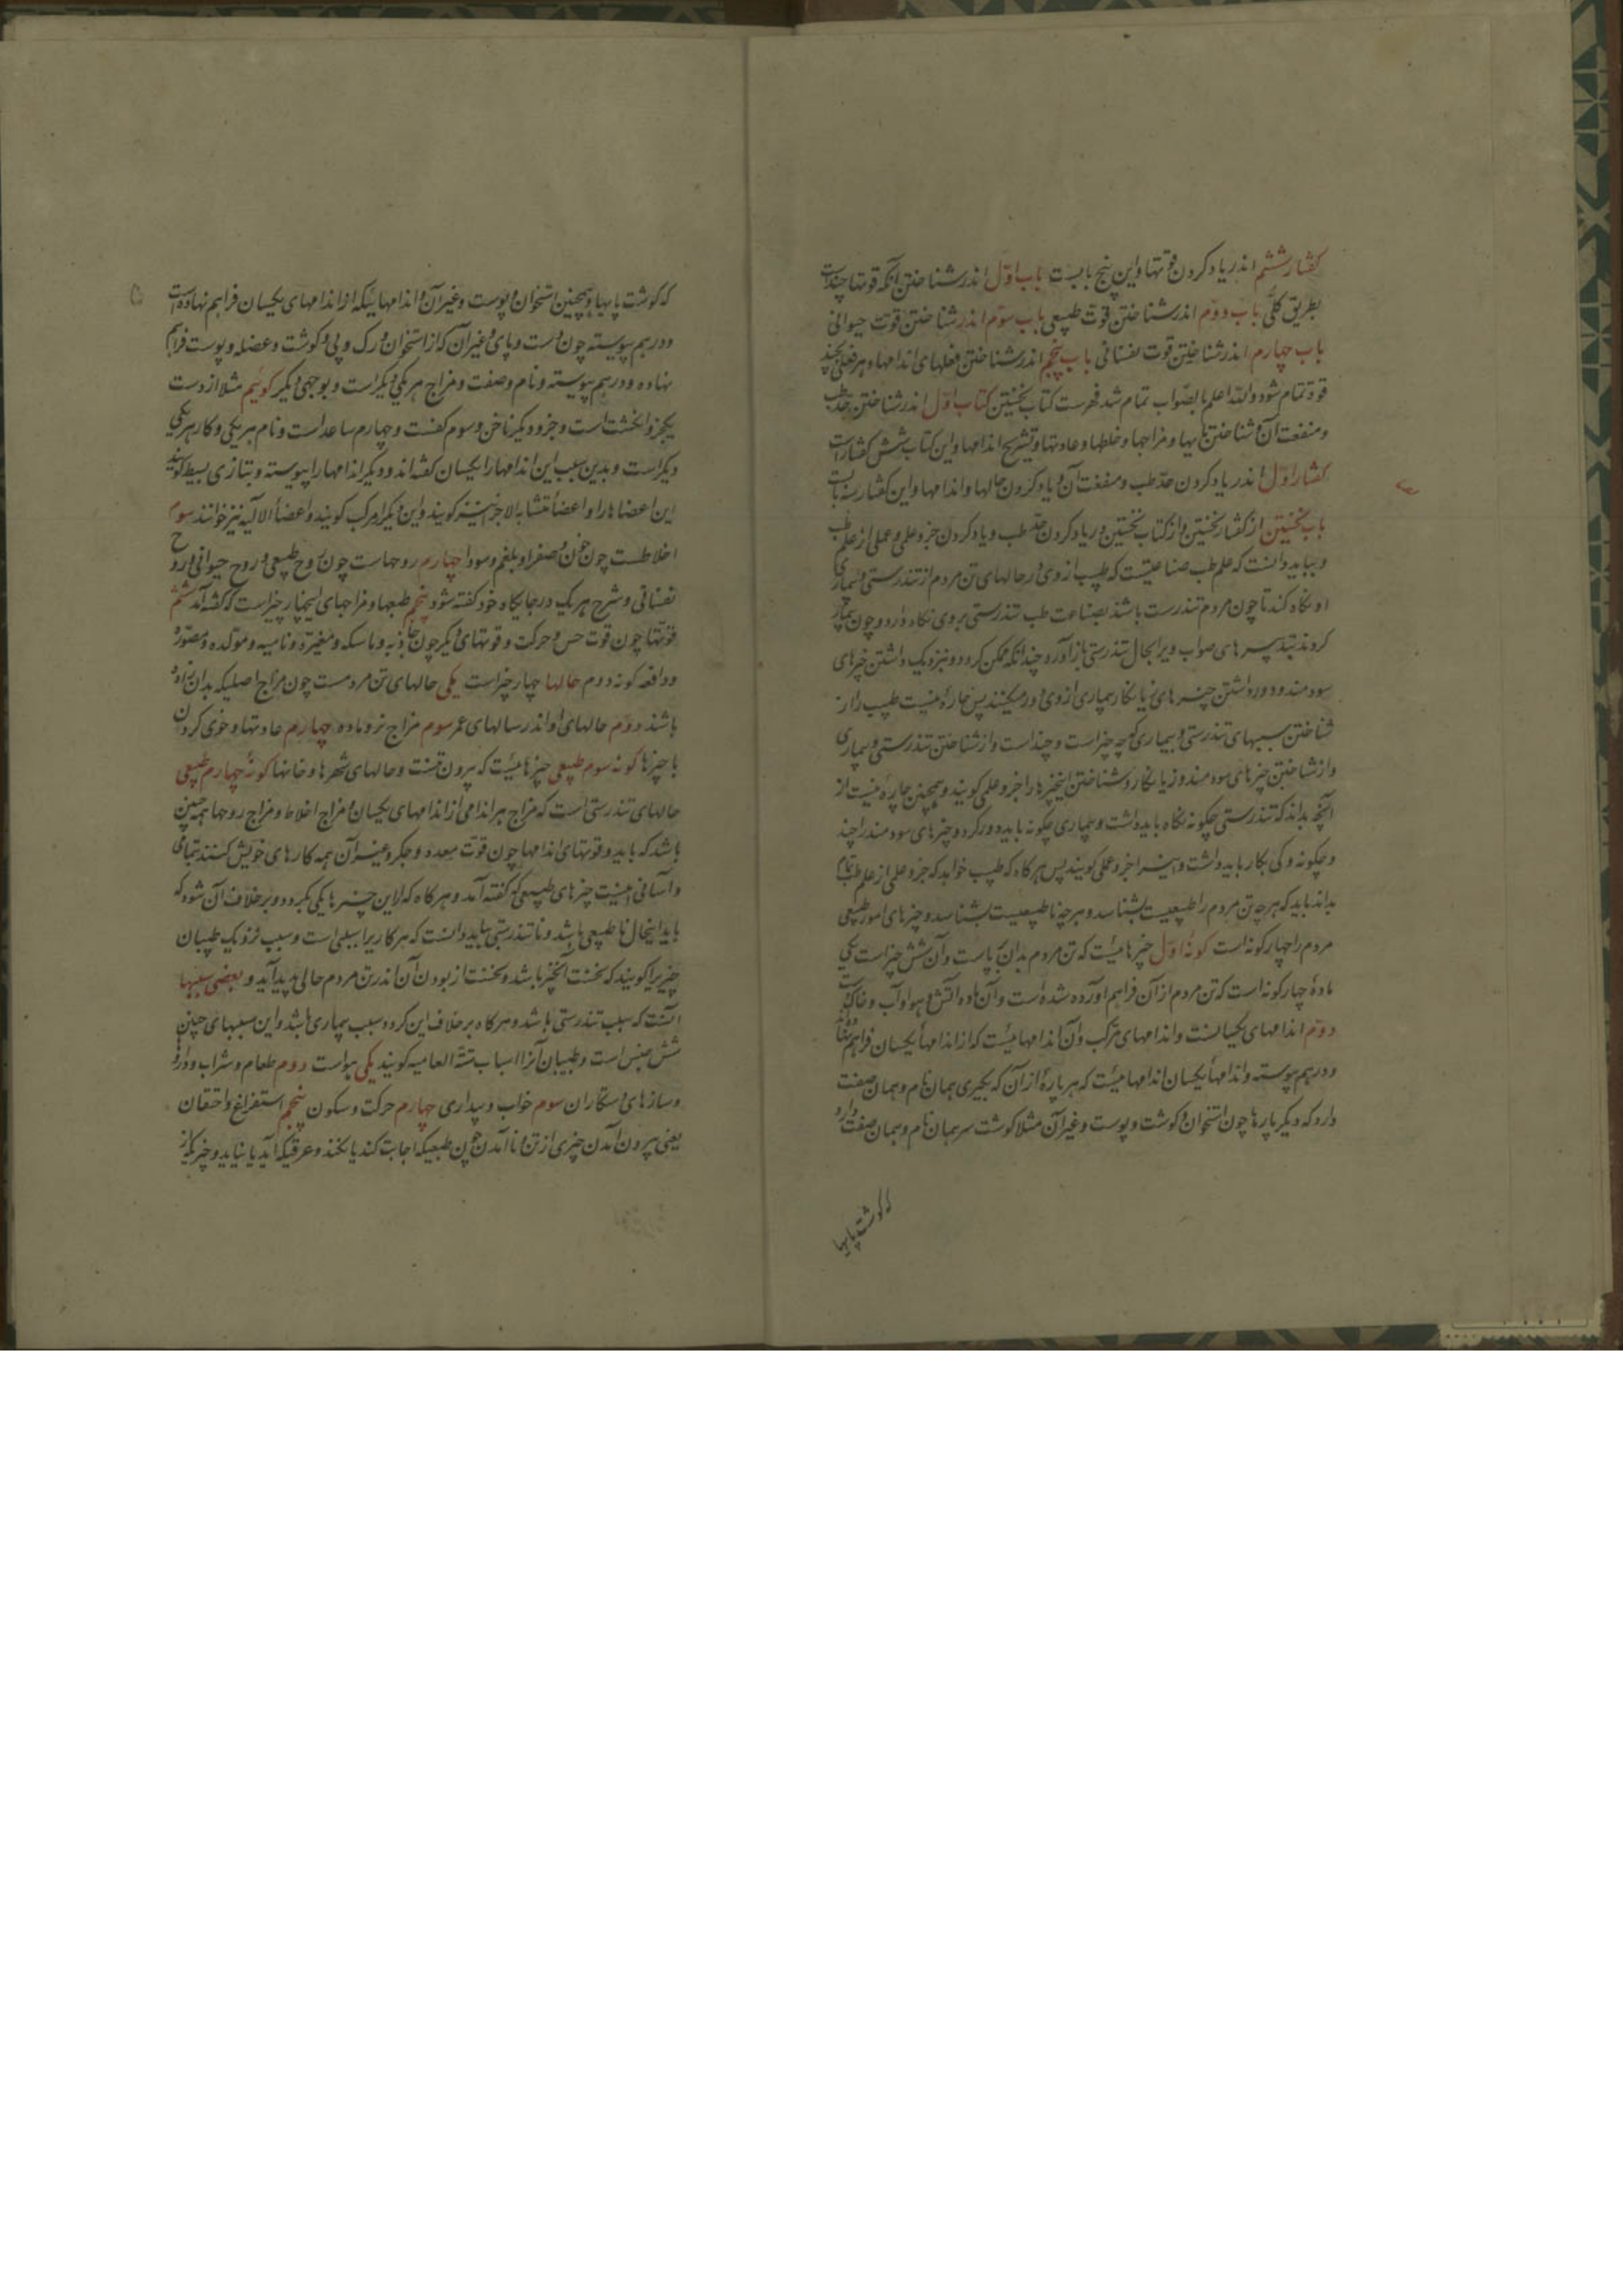 گفتار ششم اندر یاد کردن قوتها و این پنج بابست باب اوّل اندر شناختن آنکه قوتها چندست
بطریق کلّی باب دوّم اندر شناختن قوّت طبیعی باب سوّم اندر شناختن قوّت حیوانی
باب چهارم اندر شناختن قوت نفسانی باب پنجم اندر شناختن فعلهای اندامها و هر فعلی بچند
قوة تمام شود واللّه اعلم بالصّواب تمام شد فهرست کتاب نخستین کتاب اوّل اندر شناختن حدّ طب
و منفعت آن و شناختن مایها و مزاجها و خلطها و عادتها و تشریح اندامها و این کتاب شش گفتارست
گفتار اوّل اندر یاد کردن حدّ طب و منفعت آن و یاد کردن حالها و اندامها و این گفتار سه بابست
باب نخستین از گفتار نخستین و از کتاب نخستین در یاد کردن حدّ طب و یاد کردن جزو علمی و عملی از علم طب
و بباید دانست که علم طب صناعتیست که طبیب از وی در حالهای تن مردم از تندرستی و بیماری
او نگاه کند تا چون مردم تندرست باشد بصناعت طب تندرستی بر وی نگاه دارد و چون بیمار
گردد بتدبیرهای صواب ویرا بحال تندرستی باز آورد چندانکه ممکن گردد و بنزدیک داشتن چیزهای
سودمند و دور داشتن چیزهای زیانکار بیماری از وی دور میکند پس چاره نیست طبیب را از
شناختن سببهای تندرستی و بیماری که چه چیز است و چند است و از شناختن تندرستی و بیماری
و از شناختن چیزهای سودمند و زیانکار و شناختن اینچیزها را جزو علمی گویند و همچنین چاره نیست از
آنچه بداند که تندرستی چگونه نگاه باید داشت و بیماری چگونه باید دور کرد و چیزهای سودمند را چند
و چگونه و کی بکار باید داشت و این را جزو عملی گویند پس هرگاه که طبیب خواهد که جزو علمی از علم طب تمام
بداند باید که هرچه تن مردم را طبیعیست بشناسد و هرچه ناطبیعیست بشناسد و چیزهای امور طبیعی
مردم را چهار گونه است گونهٔ اوّل چیزهائیست که تن مردم بدان بپاست و آن شش چیز است یکی
مادهٔ چهار گونه است که تن مردم از آن فراهم آورده شده است و آن ماده آتش و هوا و آب و خاکست
دوّم اندامهای یکسانست و اندامهای مرکب و آن اندامهائیست که از اندامها یکسان فراهم نهاده
و در هم پیوسته و اندامها یکسان اندامهائیست که هر پارهٔ از آن که بگیری همان نام و همان صفت
دارد که دیگر پارها چون استخوان و گوشت و پوست و غیر آن مثلا گوشت سر همان نام و همان صفت دارد
که گوشت پایها
که گوشت پایها و همچنین استخوان و پوست و غیر آن و اندامهائیکه از اندامهای یکسان فراهم نهاده است
و در هم پیوسته چون دست و پای و غیر آن که از استخوان و رگ و پی و گوشت و عضله و پوست فراهم
نهاده و در هم پیوسته و نام و صفت و مزاج هر یکی دیگر است و بوجهی دیگر گوئیم مثلا از دست
یکجزو انگشت است و جزو دیگر ناخن و سوم کفست و چهارم ساعد است و نام هر یکی و کار هر یکی
دیگر است و بدین سبب این اندامها را یکسان گفته اند و دیگر اندامها را پیوسته و بتازی بسیط گویند
این اعضاها را و اعضاء متشابه الاجزا نیز گویند و این دیگر را مرکب گویند و اعضأ الآلیه نیز خوانند سوم
اخلاطست چون خون و صفرا و بلغم و سودا چهارم روحهاست چون روح طبیعی و روح حیوانی و روح
نفسانی و شرح هر یک در جایگاه خود گفته شود پنجم طبعها و مزاجهای اینچهار چیز است که گفته آمد ششم
قوتها چون قوت حس و حرکت و قوتهای دیگر چون جاذبه و ماسکه و مغیره و نامیه و مولده و مصوره
و دافعه گونه دوم حالها چهار چیز است یکی حالهای تن مردمست چون مزاج اصلیکه بدان زاده
باشند دوّم حالهای او اندر سالهای عمر سوم مزاج نر و ماده چهارم عادتها و خوی کردن
با چیزها گونه سوم طبیعی چیزهائیست که بیرون تنست و حالهای شهرها و خانها گونهٔ چهارم طبیعی
حالهای تندرستی است که مزاج هر اندامی از اندامهای یکسان و مزاج اخلاط و مزاج روحها همچنین
باشد که باید و قوتهای اندامها چون قوّت معده و جگر و غیر آن همه کارهای خویش کنند بتمامی
و آسانی اینست چیزهای طبیعی که گفته آمد و هرگاه که از این چیزها یکی بگردد و برخلاف آن شود که
باید اینحال ناطبیعی باشد و ناتندرستی بباید دانست که هر کاریرا سببی است و سبب نزدیک طبیبان
چیزیرا گویند که نخست آنچیز باشد و نخست از بودن آن اندر تن مردم حالی پدید آید و بعضی سببها
آنست که سبب تندرستی باشد و هرگاه برخلاف این گردد سبب بیماری باشد و این سببهای چنین
شش جنس است و طبیبان آنرا اسباب ستّة العامیه گویند یکی هواست دوم طعام و شراب و دارو
و سازهای دستکاران سوم خواب و بیداری چهارم حرکت و سکون پنجم استفراغ و احتقان
یعنی بیرون آمدن چیزی از تن و نا آمدن چون طبعیکه اجابت کند یا نکند و عرقیکه آید یا نیاید و چیزیکه از